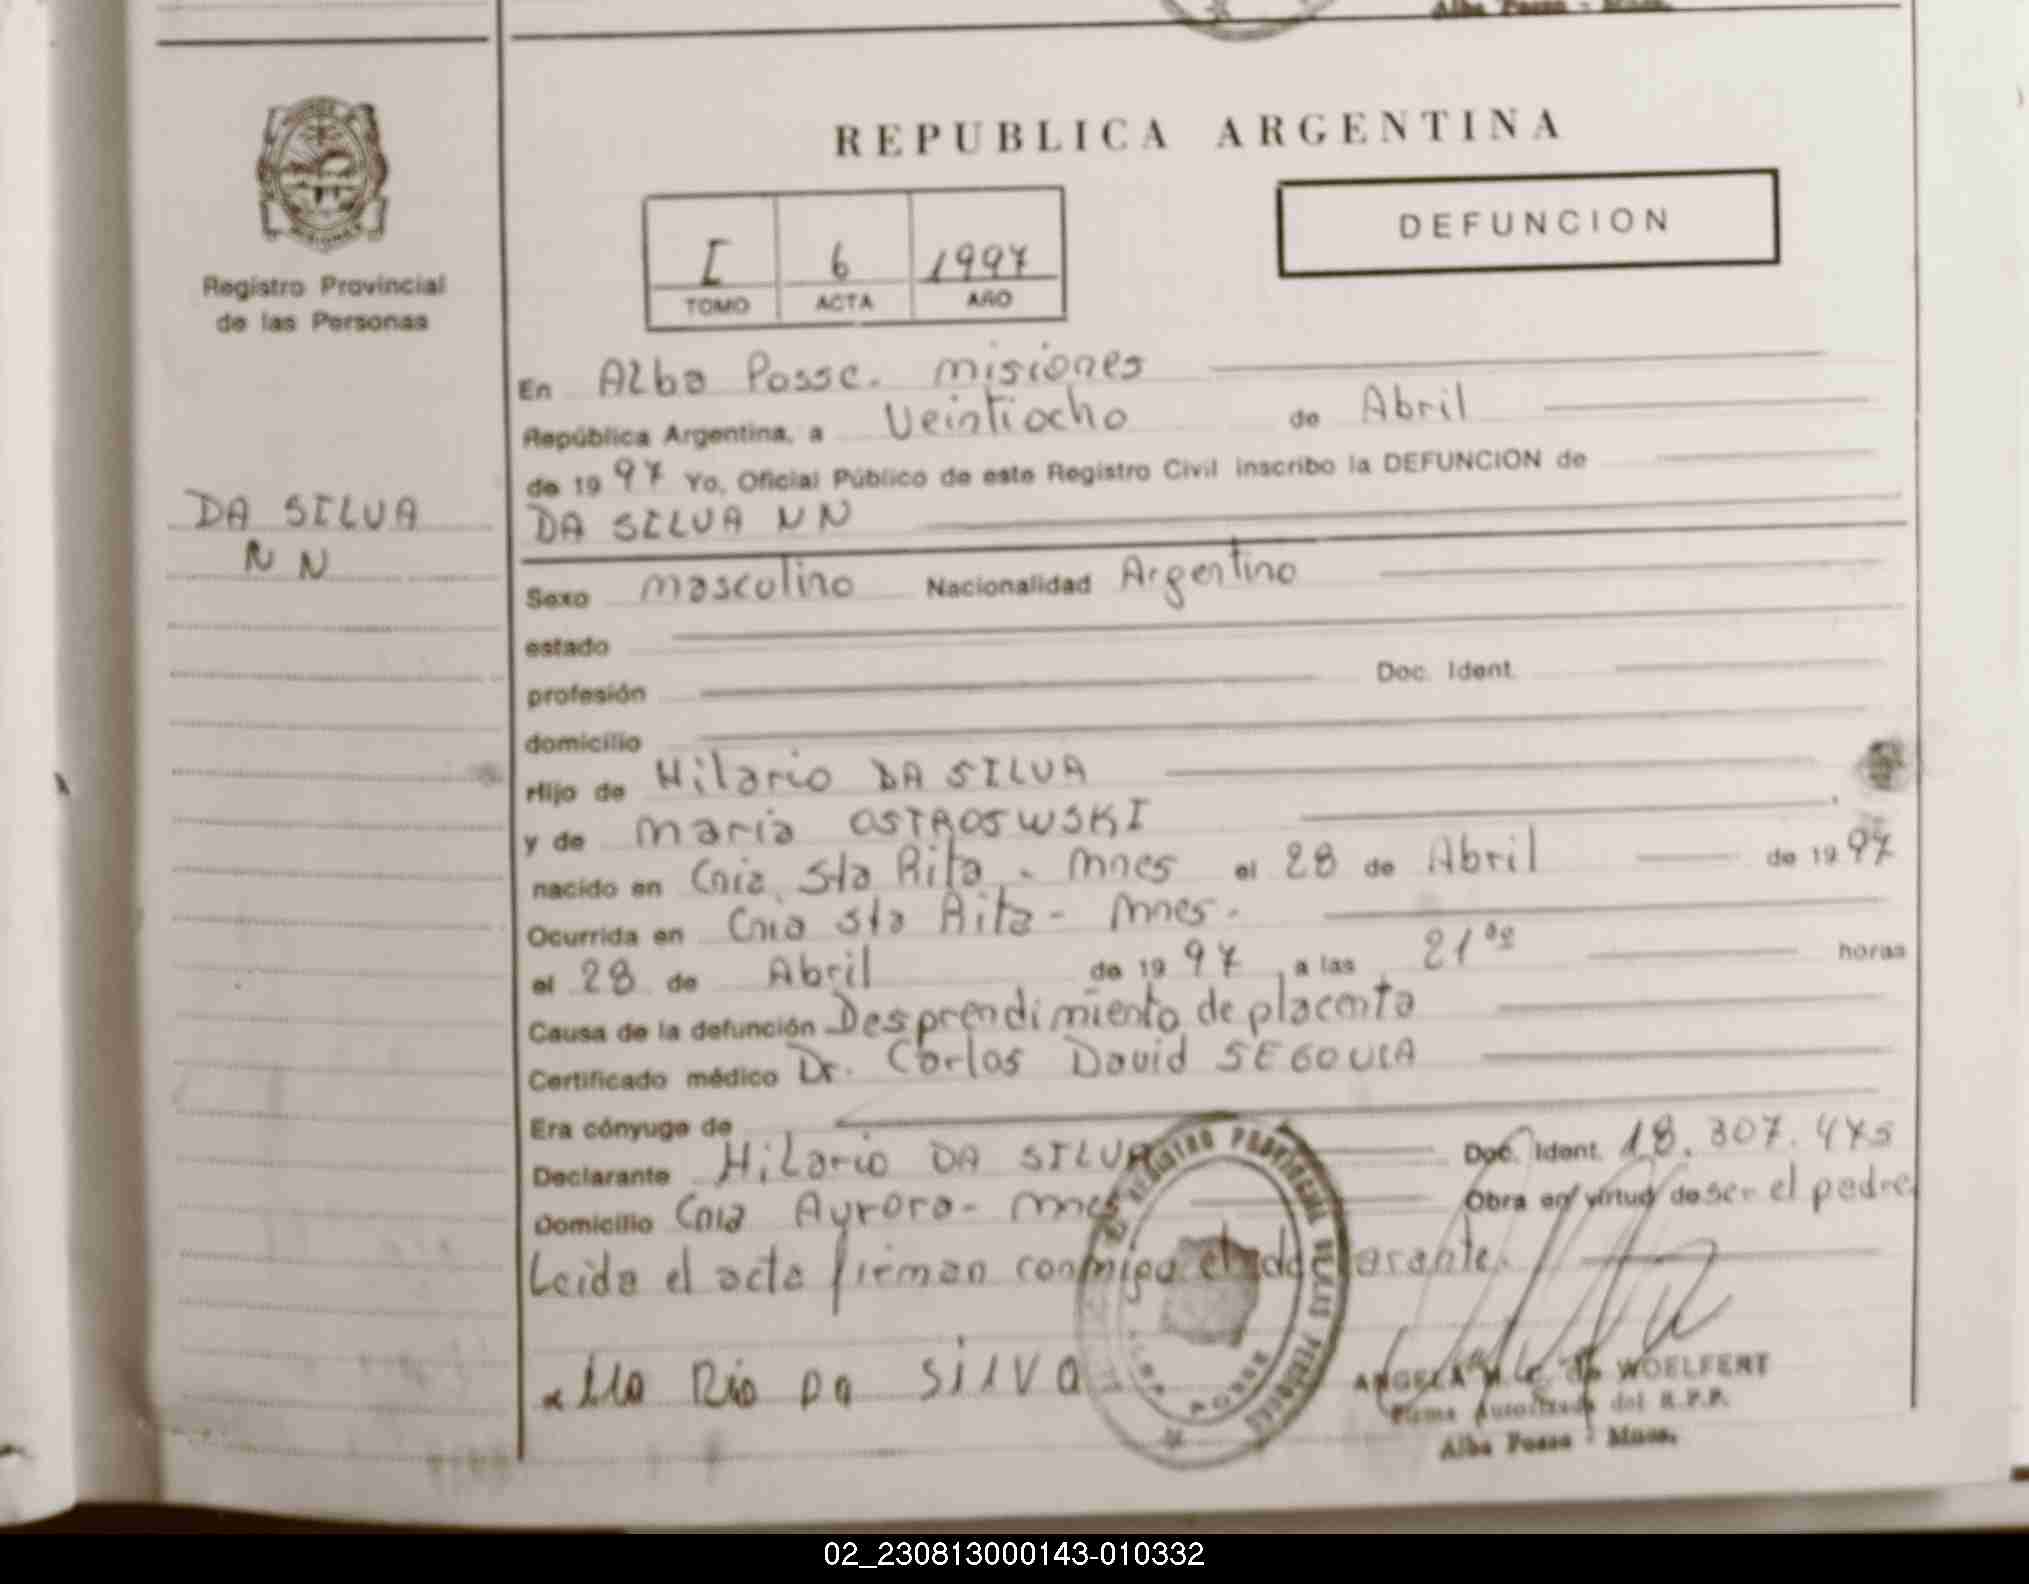 Alba Posse - Mnes.
REPUBLICA ARGENTINA
DEFUNCION
I 6 1997
TOMO ACTA AÑO
MISIONES
Registro Provincial
de las Personas
DA SILVA
N N
En Alba Posse. misiones
República Argentina, a Veintiocho de Abril
de 19 97 Yo, Oficial Público de este Registro Civil inscribo la DEFUNCION de
DA SILVA N N
Sexo masculino Nacionalidad Argentino
estado
profesión Doc. Ident.
domicilio
Hijo de Hilario DA SILVA
y de maria OSTROSWSKI
nacido en Cnia. Sta Rita - mnes el 28 de Abril de 19 97
Ocurrida en Cnia Sta Rita - mnes.
el 28 de Abril de 19 97, a las 21 00 horas
Causa de la defunción Desprendimiento de placenta
Certificado médico Dr. Carlos David SEGOVIA
Era cónyuge de
Declarante Hilario DA SILVA Doc. Ident. 18.307.475
Domicilio Cnia Aurora - mnes Obra en virtud de ser el padre
Leida el acta firman conmigo el declarante.
REGISTRO PROVINCIAL DE LAS PERSONAS
ALBA POSSE
Rio DA SilVA
ANGELA de WOELFERT
Firma Autorizada del R.P.P.
Alba Posse - Mnes.
02_230813000143-010332